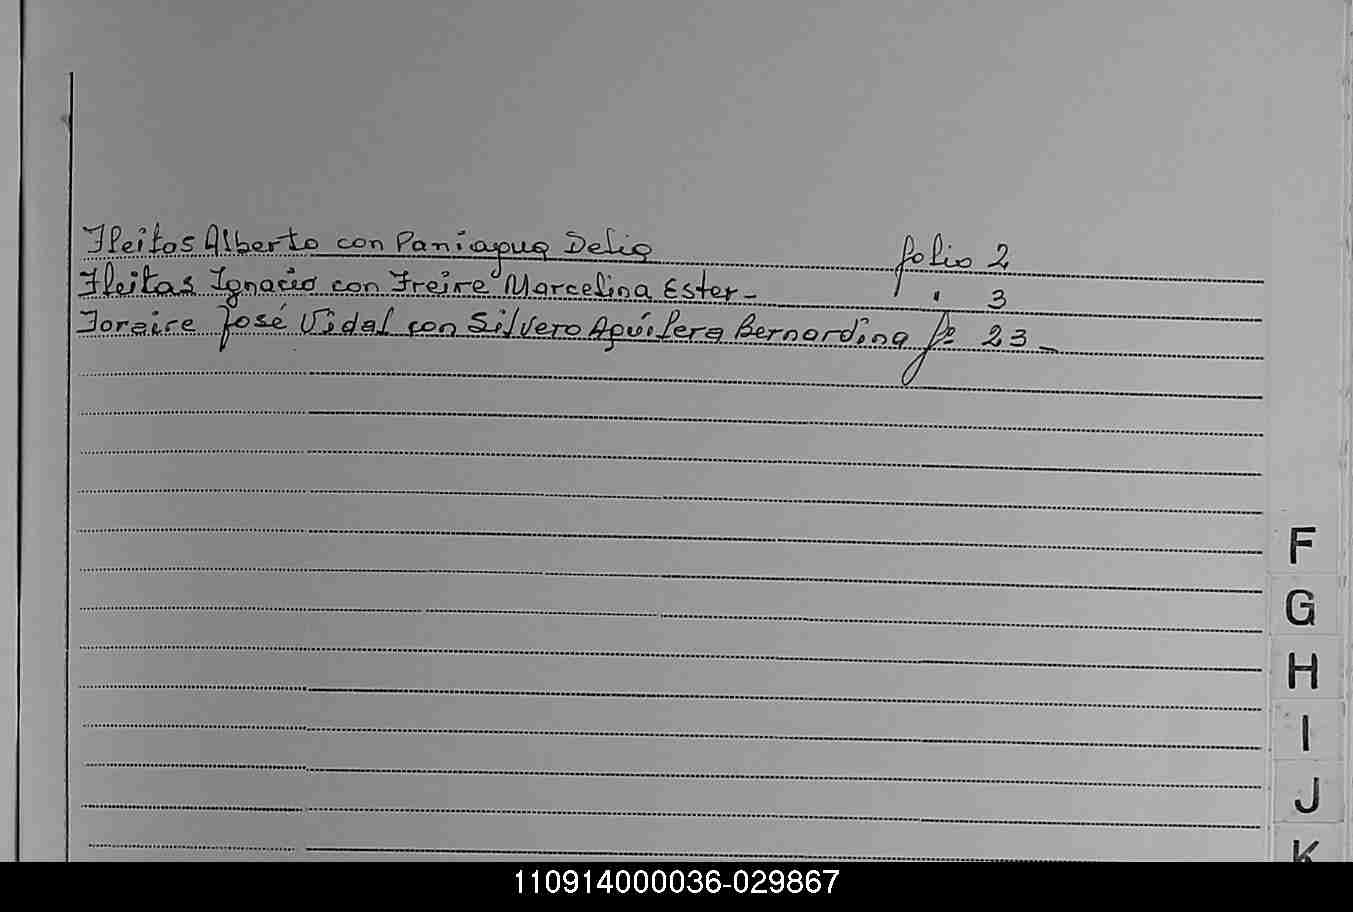 Fleitas Alberto con Paniagua Delia folio 2
Fleitas Ignacio con Freire Marcelina Ester - " 3
Foraire José Vidal con Silvero Aguilera Bernardina fº 23 -
F
G
H
I
J
K
110914000036-029867